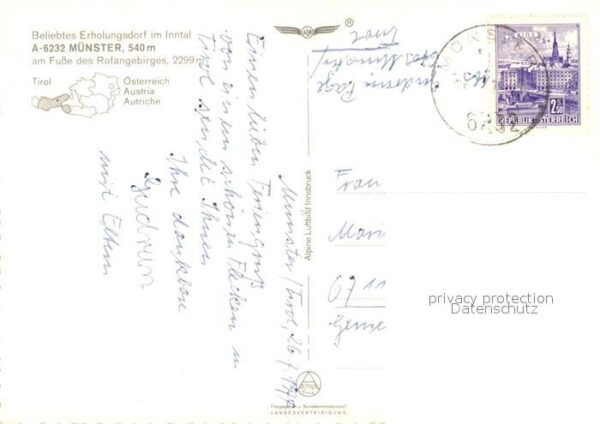 Beliebtes Erholungsdorf im Inntal
A-6232 MÜNSTER, 540 m
am Fuße des Rofangebirges, 2299 m
Tirol
Österreich
Austria
Autriche
Münster/Tirol, 26.7.
Einen lieben Feriengruß
von einem schönen Flecken in
Tirol sendet Ihnen
Ihre dankbare
Gudrun
mit Eltern
Alpine Luftbild Innsbruck
Freigegeben v. Bundesministerium f.
LANDESVERTEIDIGUNG
Tirol
6232
2.50
REPUBLIK ÖSTERREICH
Frau
Mari
6711
privacy protection
Datenschutz